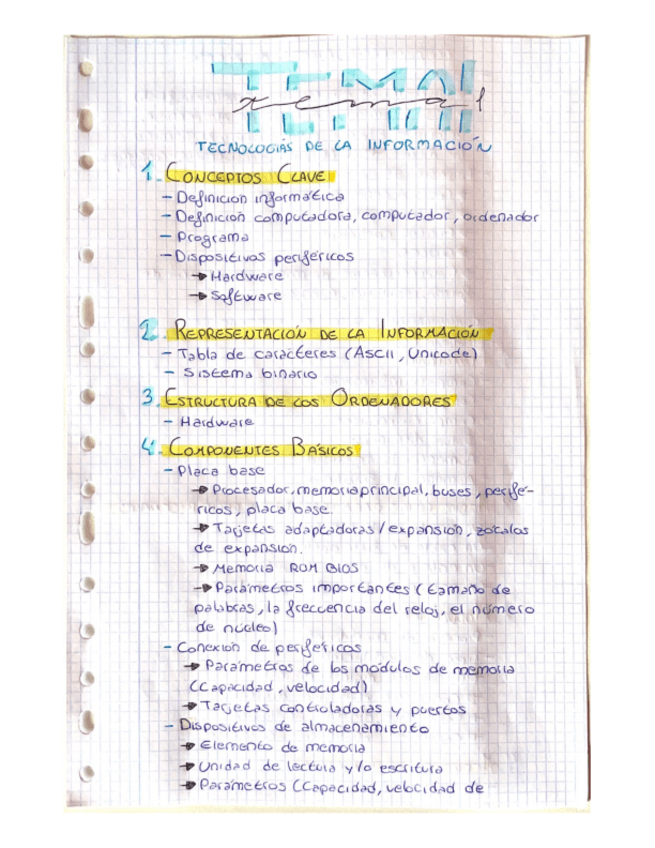 TEMA 1
tema 1
TECNOLOGÍAS DE LA INFORMACIÓN
1. CONCEPTOS CLAVE
- Definición informática
- Definición computadora, computador, ordenador
- Programa
- Dispositivos periféricos
→ Hardware
→ Software
2. REPRESENTACIÓN DE LA INFORMACIÓN
- Tabla de carácteres (ASCII, Unicode)
- Sistema binario
3. ESTRUCTURA DE LOS ORDENADORES
- Hardware
4. COMPONENTES BÁSICOS
- Placa base
→ Procesador, memoria principal, buses, perifé-
ricos, placa base.
→ Tarjetas adaptadoras / expansión, zócalos
de expansión.
→ Memoria ROM BIOS
→ Parámetros importantes (tamaño de
palabras, la freccuencia del reloj, el número
de núcleo)
- Conexión de periféricos
→ Parámetros de los módulos de memoria
(Capacidad, velocidad)
→ Tarjetas controladoras y puertos
- Dispositivos de almacenamiento
→ Elemento de memoria
→ Unidad de lectura y/o escritura
→ Parámetros (Capacidad, velocidad de